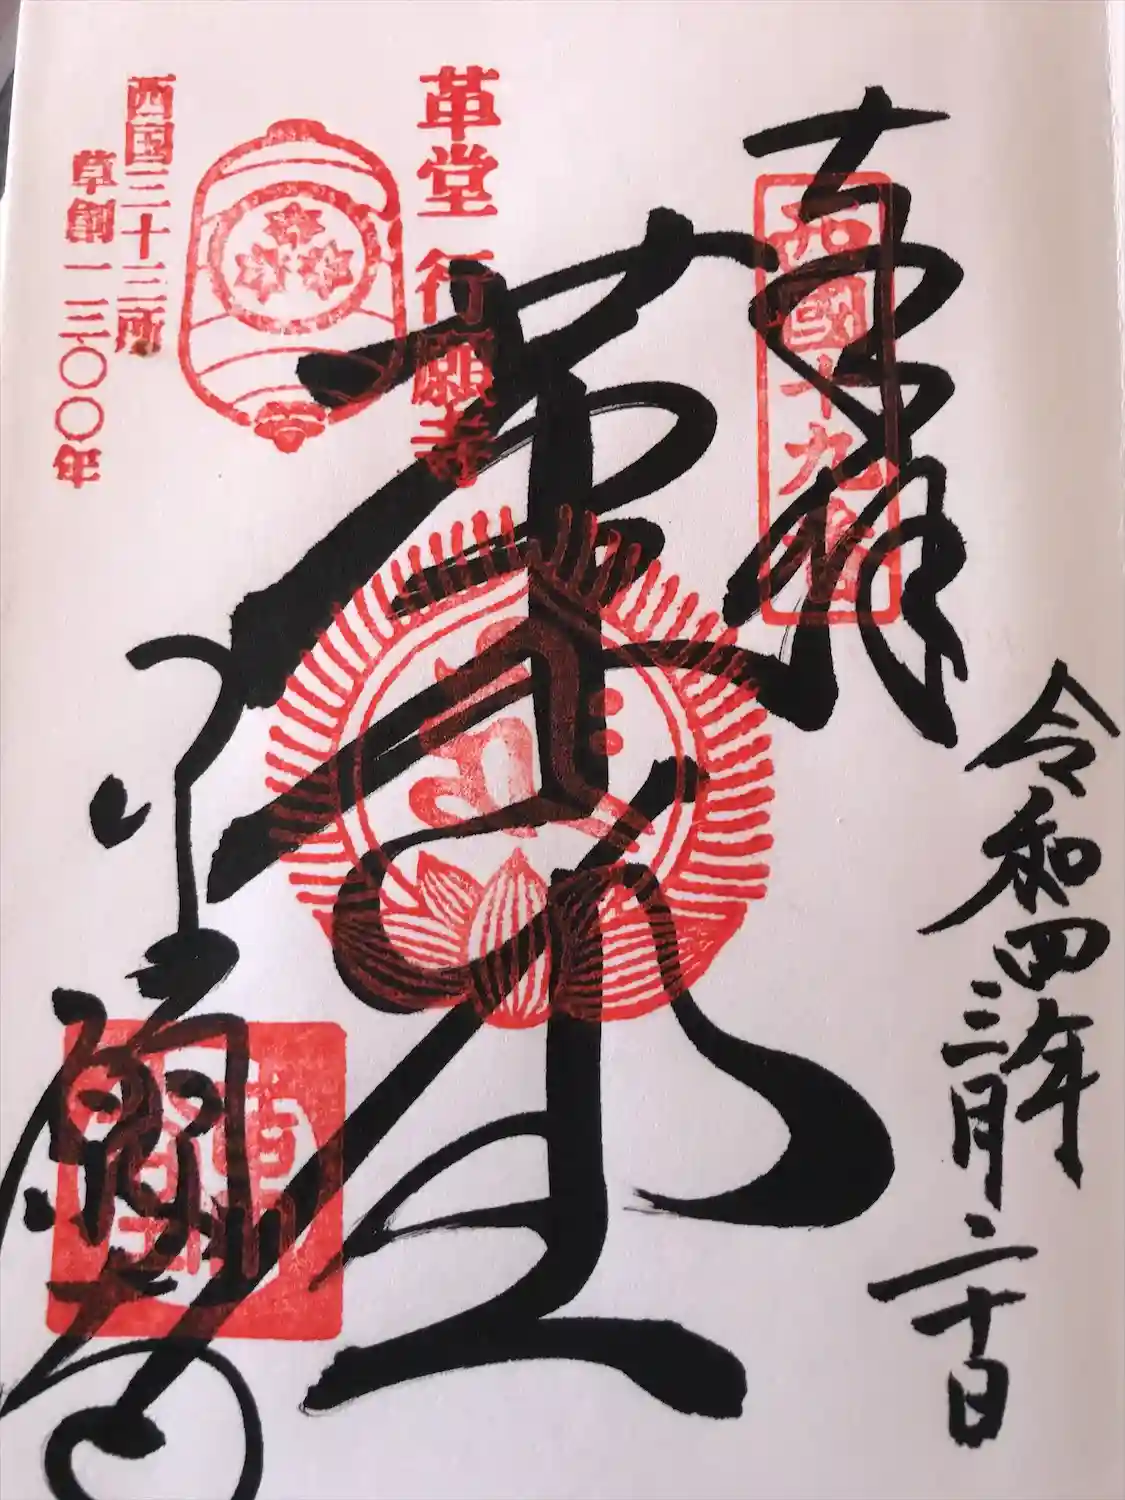 奉拝
西國十九番
令和四年
三月二十日
革堂
革堂 行願寺
行願寺
西国三十三所
草創一三〇〇年